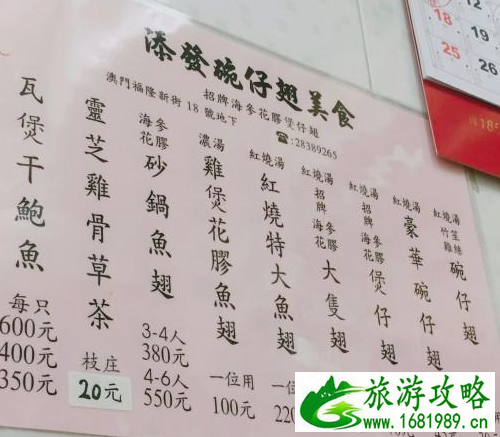 添發碗仔翅美食
招牌海參花膠煲仔翅
澳門福隆新街 18 號地下
☎:28389265
瓦煲干鮑魚
每只
600元
400元
350元
靈芝雞骨草茶
枝庄
20元
海參花膠砂鍋魚翅
3-4人
380元
4-6人
550元
濃湯雞煲花膠魚翅
一位用
100元
紅燒湯紅燒特大魚翅
一位
220
紅燒湯招牌海參花膠大隻翅
紅燒湯招牌海參花膠煲仔翅
紅燒湯豪華碗仔翅
紅燒湯竹笙雞絲碗仔翅
18
19
25
26
旅游攻略
www.1681989.cn